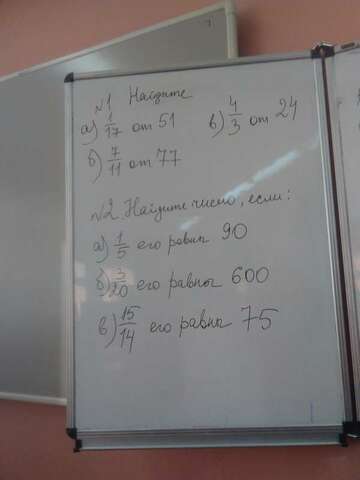 №1 Найдите
а) 1/17 от 51
в) 4/3 от 24
б) 7/11 от 77
№2. Найдите число, если:
а) 1/5 его равна 90
б) 3/20 его равны 600
в) 15/14 его равны 75